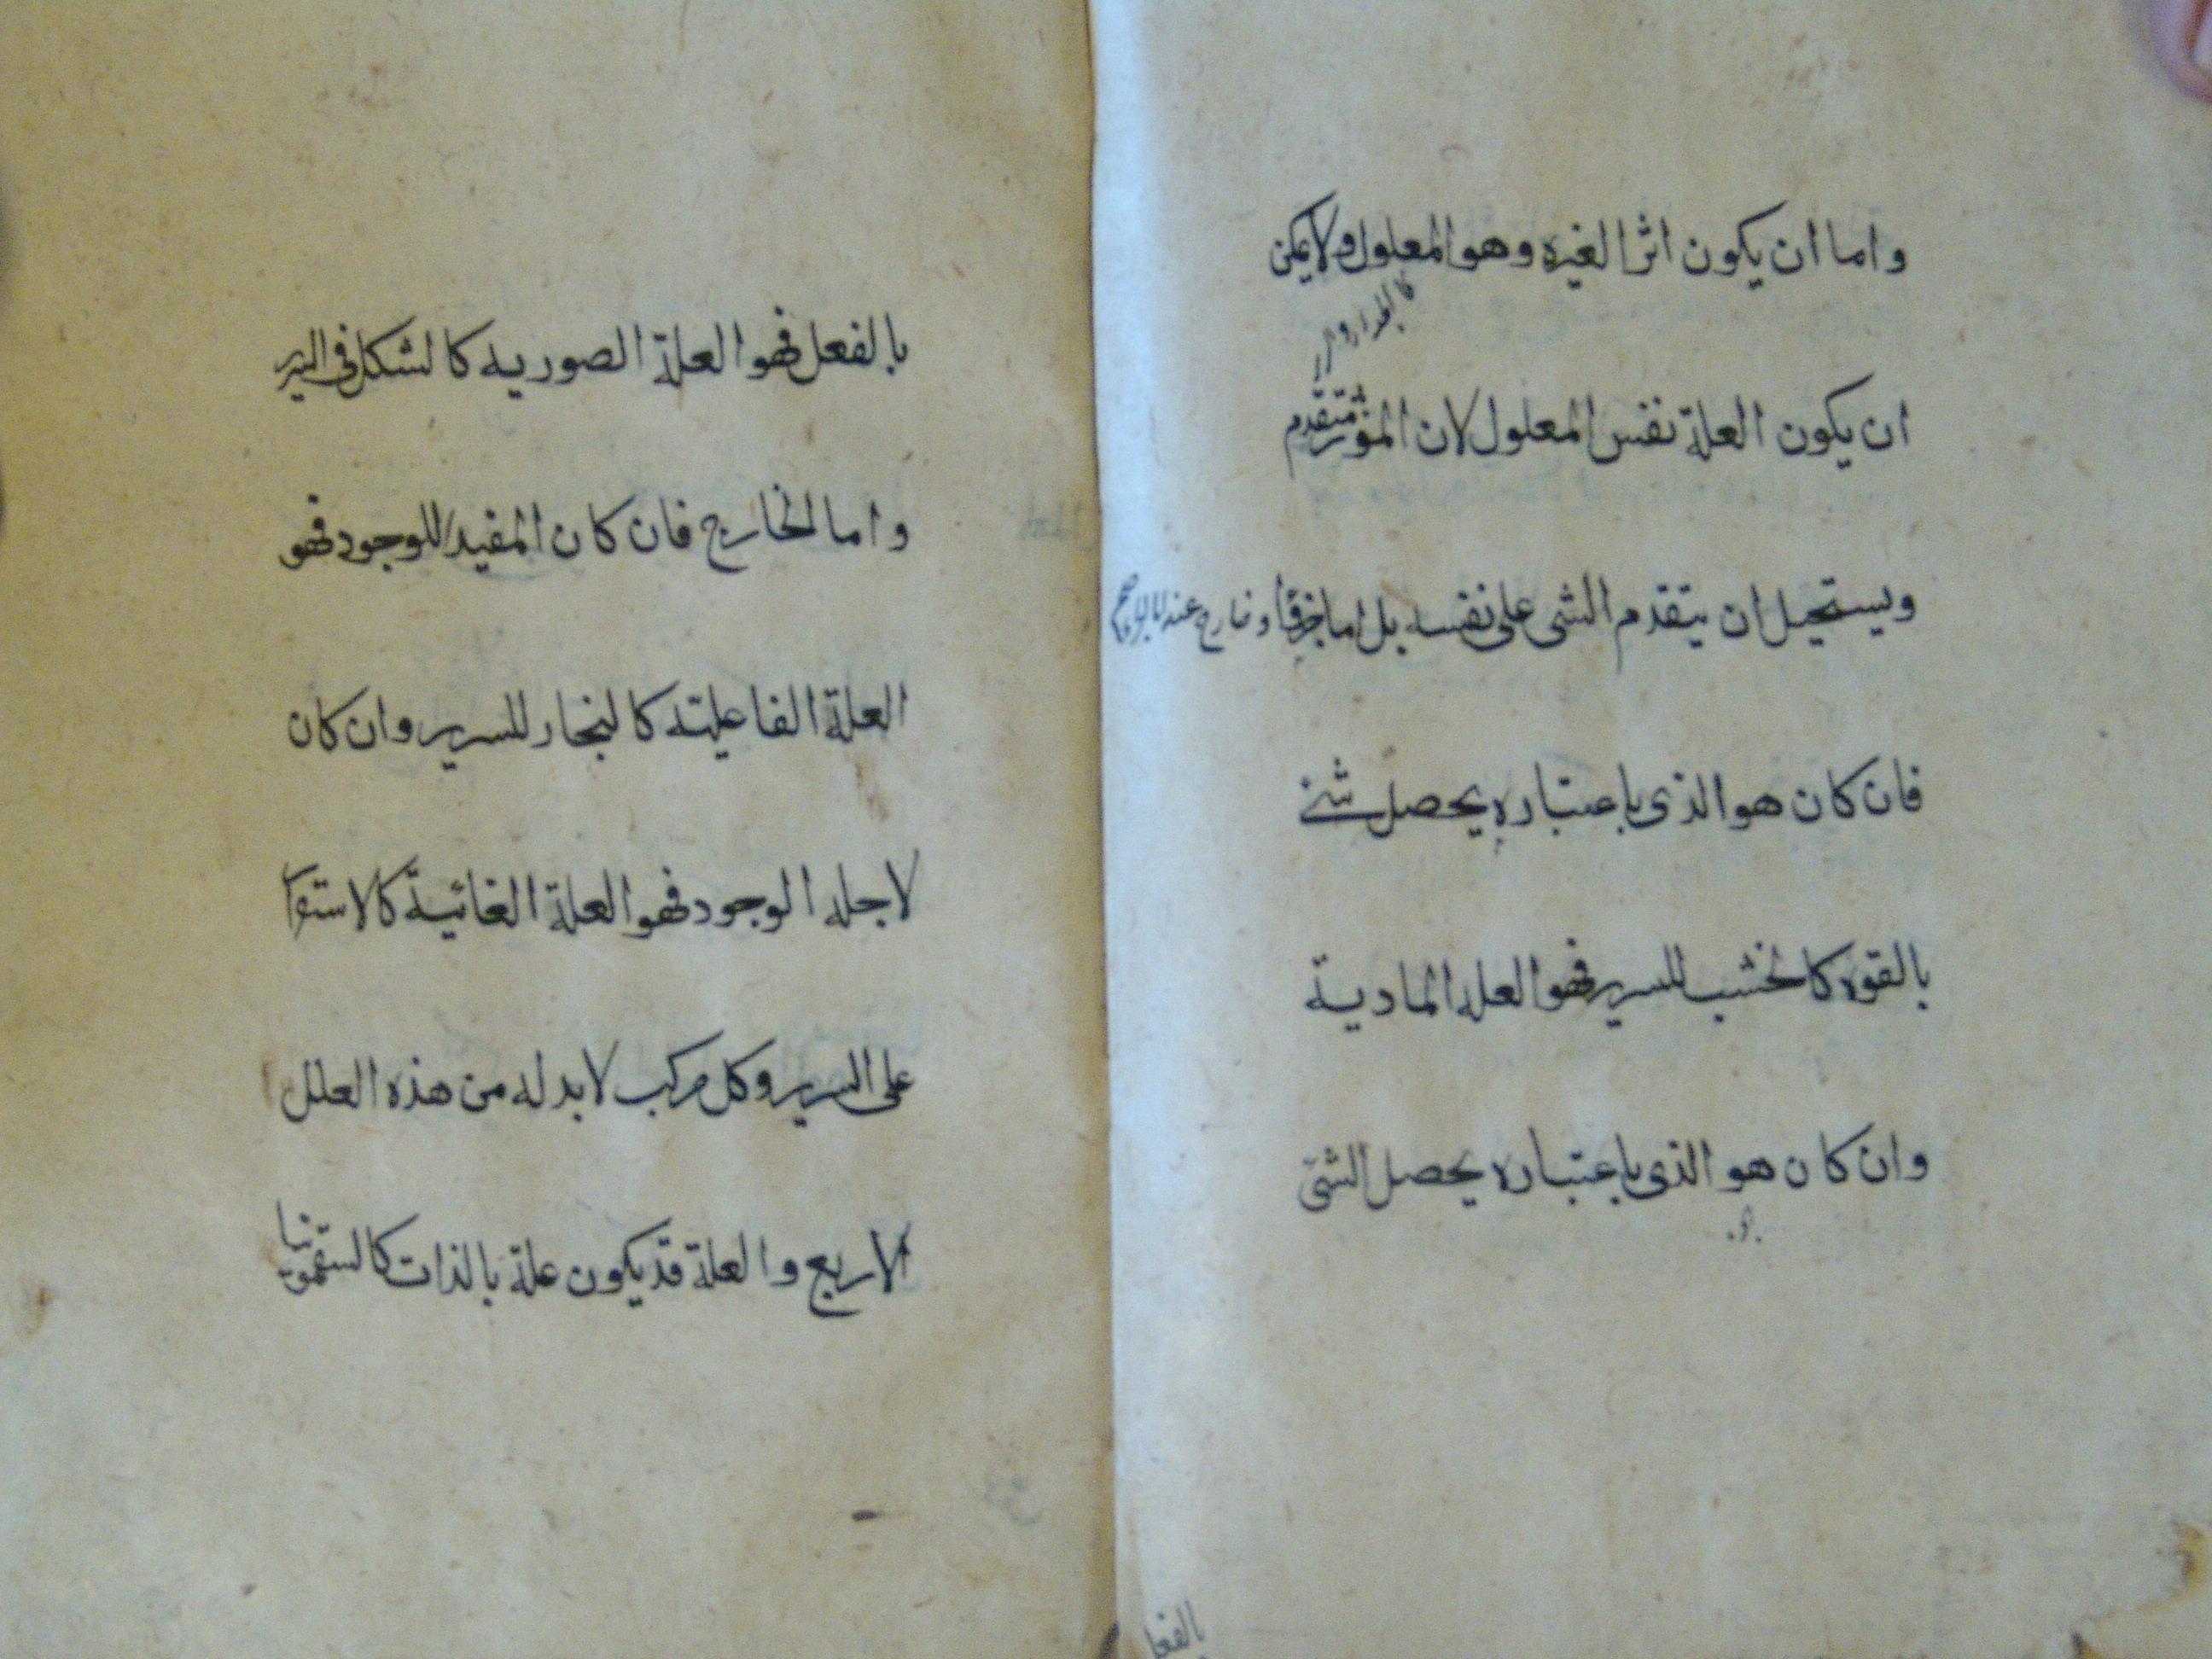 واما ان يكون اثرا لغيره وهو المعلول ولا يمكن
ان يكون العلة نفس المعلول لان المؤثر متقدم
ويستحيل ان يتقدم الشى على نفسه بل اما جزؤ او خارج عنه
فان كان هو الذى باعتباره يحصل شئ
بالقوه كالخشب للسرير فهو العله المادية
وان كان هو الذى باعتباره يحصل الشئ
بالفعل
بالفعل فهو العلة الصوريه كالشكل فى السرير
واما الخارج فان كان المفيد للوجود فهو
العلة الفاعليته كالنجار للسرير وان كان
لاجله الوجود فهو العلة الغائية كالاستقرا
على السرير وكل مركب لا بد له من هذه العلل
الاربع والعلة قد يكون علة بالذات كالسقمونيا